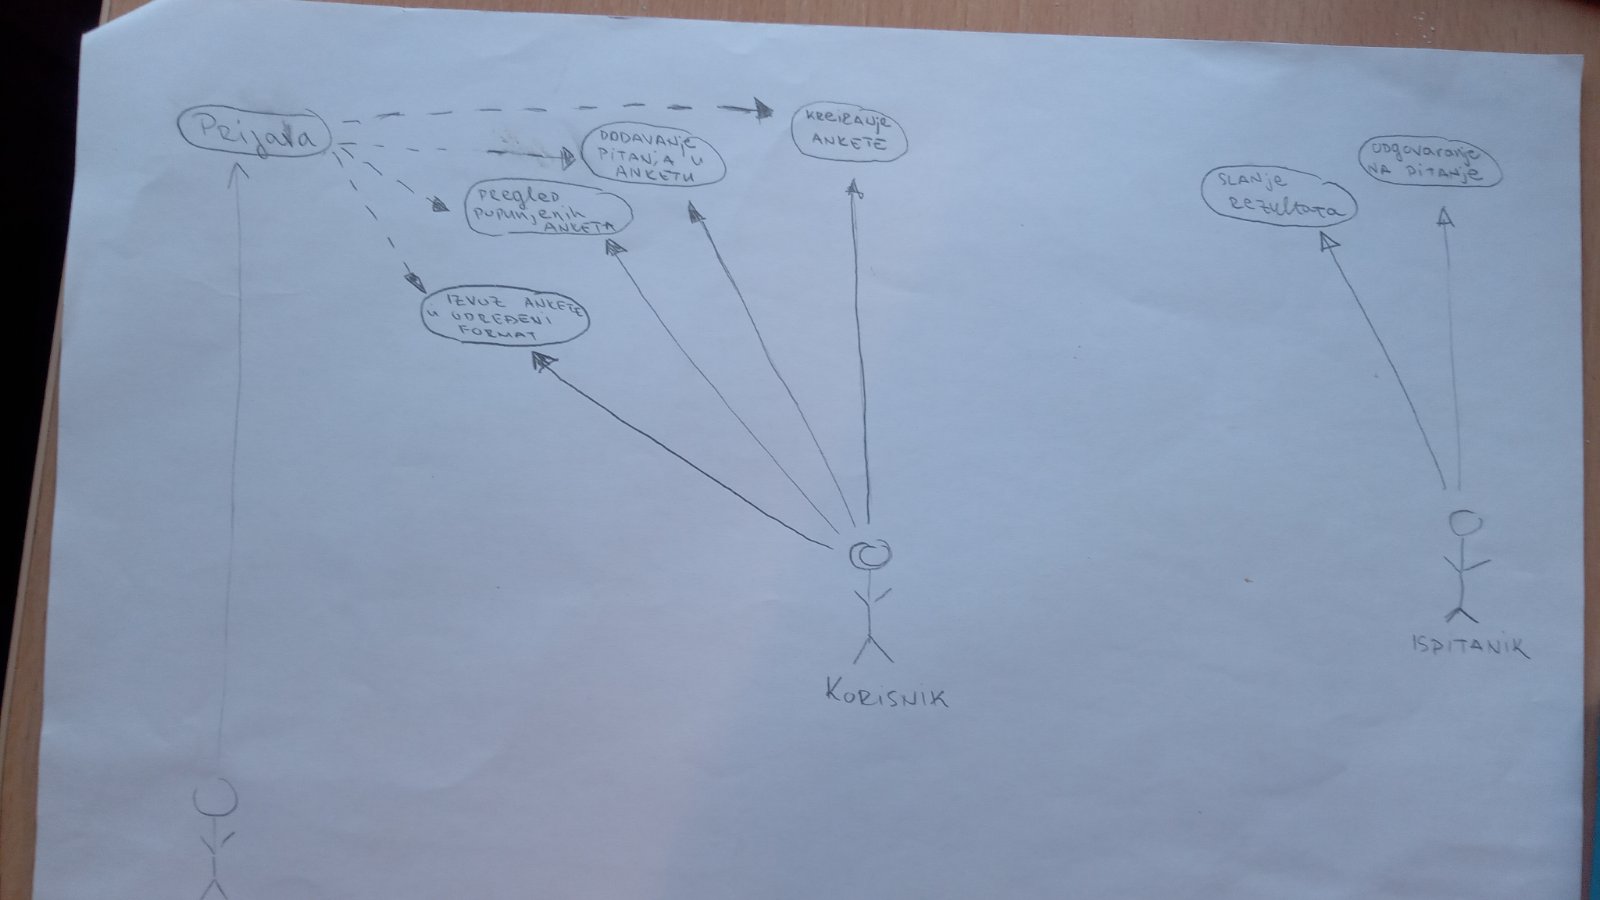 Prijava
KREIRANJE
ANKETE
DODAVANJE
PITANJA U
ANKETU
PREGLED
POPUNJENIH
ANKETA
IZVOZ ANKETE
U ODREĐENI
FORMAT
SLANJE
REZULTATA
ODGOVARANJE
NA PITANJE
KORISNIK
ISPITANIK